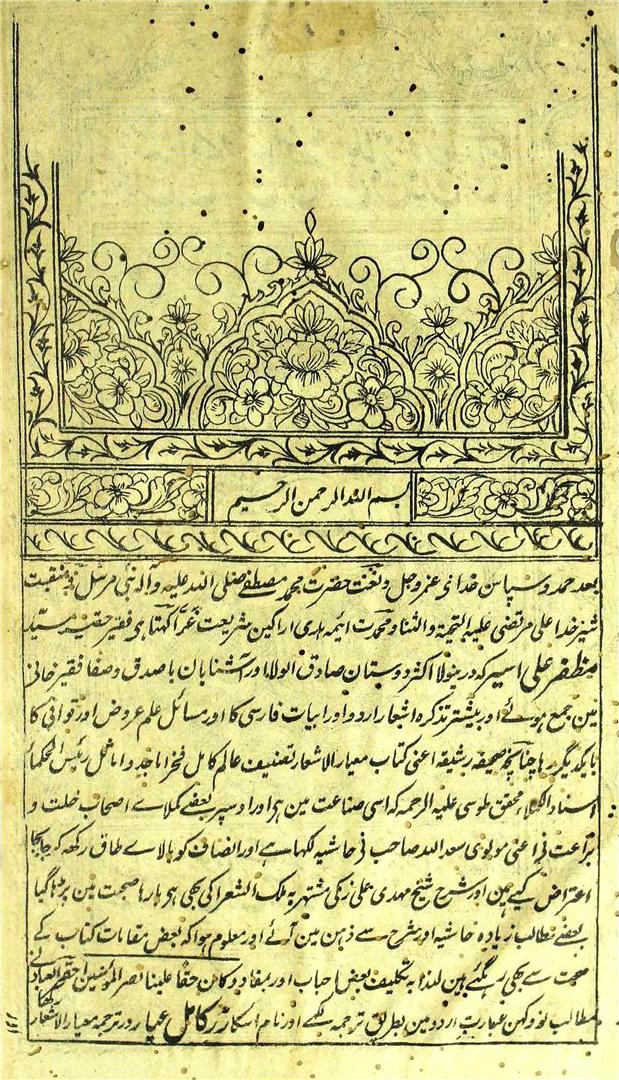 بسم اللہ الرحمن الرحیم
بعد حمد و سپاس خدای عز وجل و نعت حضرت محمد مصطفے صلی اللہ علیہ و آلہ نبی مرسل و منقبت
شیر خدا علی مرتضی علیہ التحیۃ والثنا و مدحت ائیمہ ہدی اراکین شریعت غرا کہتا ہی فقیر حقیر سید
مظفر علی اسیر کہ درینولا اکثر دوستان صادق الولا اور آشنایان باصدق و صفا فقیر خانی
مین جمع ہوئے اور بیشتر تذکرہ اشعار اردو اور ابیات فارسی کا اور مسائل علم عروض اور قوافی کا
بایکدیگر رہا چنانچہ صحیفہ رشیقہ اعنی کتاب معیار الاشعار تصنیف عالم کامل فخر اماجد و اماثل رئیس الحکما
استاد الکملاء محقق طوسی علیہ الرحمہ کہ اسی صناعت مین ہی اور اوسپر بعضے کملاے اصحاب خلت و
براعت نی اعنی مولوی سعد اللہ صاحب نی حاشیہ لکہا ہے اور انصاف کو بالاے طاق رکھہ کہ جابجا
اعتراض کیے ہین اور شرح شیخ مہدی علی زکی مشتہر بہ ملک الشعرا کی بھی ہی بارہا صحبت مین پڑہا گیا
بعضے مطالب زیادہ حاشیہ اور شرح سے ذہن مین آئے اور معلوم ہوا کہ بعض مقامات کتاب کے
صحت سے بھی رہگئے ہین لہذا بہ تکلیف بعض احباب اور بمفاد و کان حقا علینا نصر المؤمنین احقر العباد نی
مطالب نو و کہن عبارت اردو مین بطریق ترجمہ لکھے اور نام اسکا زر کامل عیار در ترجمہ معیار الاشعار رکہا